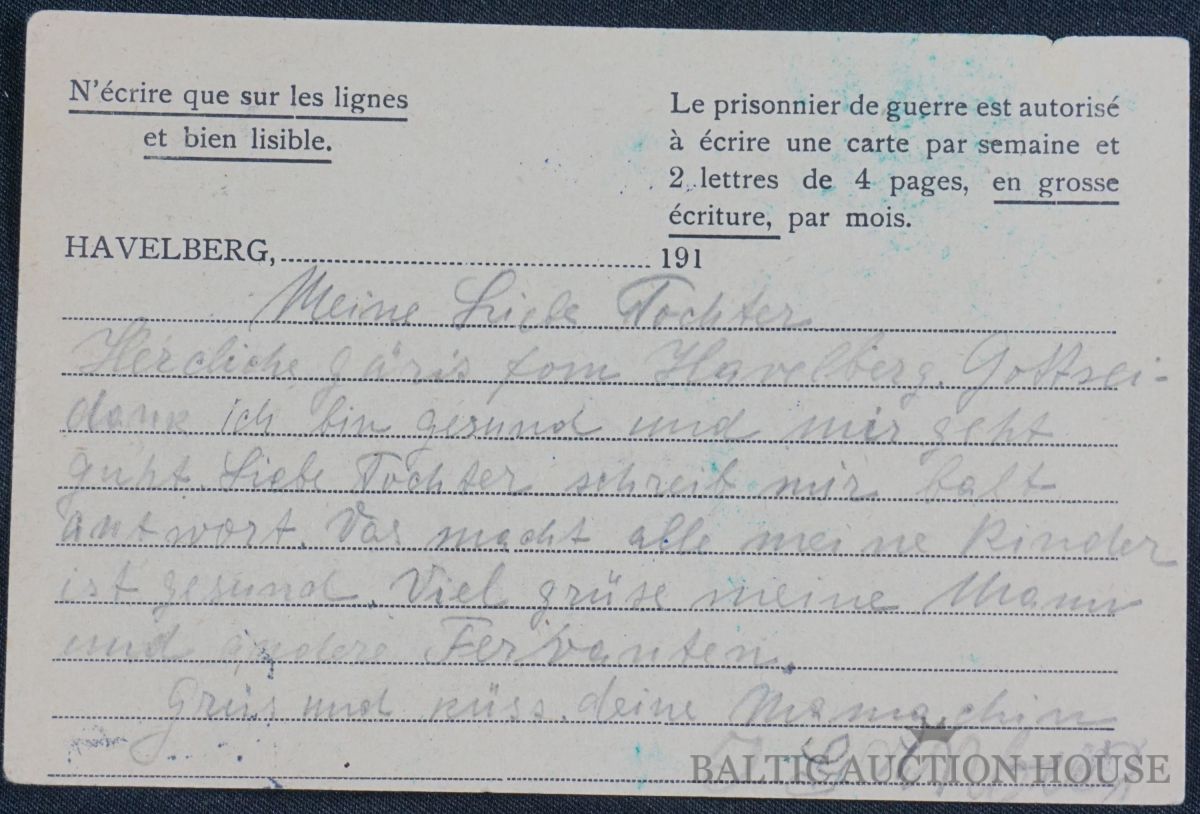 N'écrire que sur les lignes
et bien lisible.
Le prisonnier de guerre est autorisé
à écrire une carte par semaine et
2 lettres de 4 pages, en grosse
écriture, par mois.
HAVELBERG, 191
Meine Liebe Tochter
Hercliche gäris fom Havelberg. Gottsei-
dank ich bin gesund und mir geht
guht. Liebe Tochter schreib mir balt
antwort. Vas macht alle meine Kinder
ist gesund. Viel grüse meine Mann
und andere Fervanten.
Grüs und küss. deine Mamachin
BALTIC AUCTION HOUSE